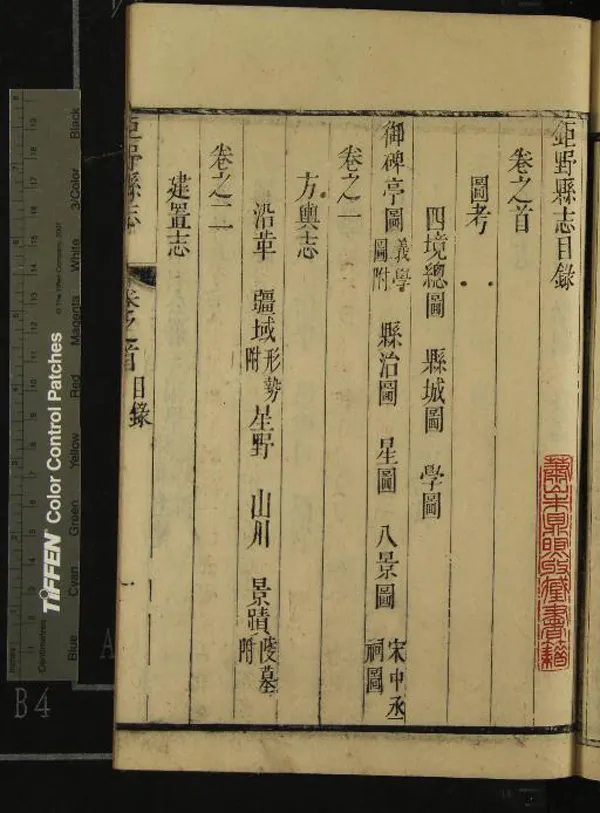 鉅野縣志目錄
卷之首
圖考
四境總圖 縣城圖 學圖
御碑亭圖 義學圖附 縣治圖 星圖 八景圖 宋中丞祠圖
卷之一
方輿志
沿革 疆域 形勢附 星野 山川 景蹟 陵墓附
卷之二
建置志
鉅野縣志 卷之首 目錄 一
蕭山朱鼎煦收藏書籍
TIFFEN Color Control Patches
© The Tiffen Company, 2007
Blue Cyan Green Yellow Red Magenta White 3/Color Black
Centimetres
B4